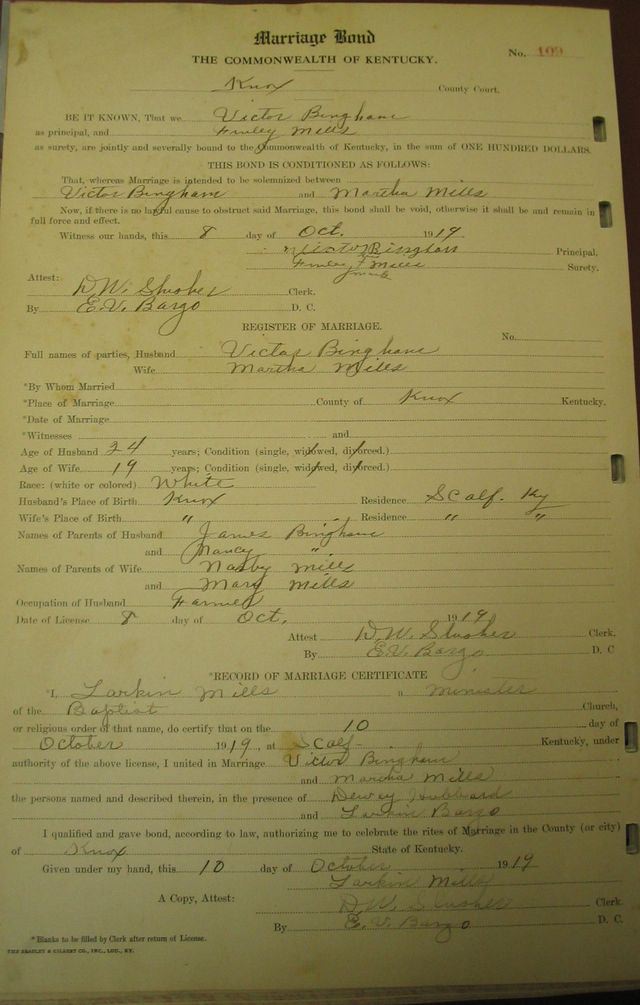 Marriage Bond
THE COMMONWEALTH OF KENTUCKY.
No. 109
Knox County Court.
BE IT KNOWN, That we Victor Bingham
as principal, and Finley Mills
as surety, are jointly and severally bound to the Commonwealth of Kentucky, in the sum of ONE HUNDRED DOLLARS.
THIS BOND IS CONDITIONED AS FOLLOWS:
That, whereas Marriage is intended to be solemnized between
Victor Bingham and Martha Mills
Now, if there is no lawful cause to obstruct said Marriage, this bond shall be void, otherwise it shall be and remain in
full force and effect.
Witness our hands, this 8 day of Oct. 1919
Victor Bingham Principal,
Finley F Mills Surety.
Attest:
D.W. Slusher Clerk.
By E.V. Bargo D. C.
REGISTER OF MARRIAGE.
No.
Full names of parties, Husband Victor Bingham
Wife Martha Mills
*By Whom Married
*Place of Marriage County of Knox Kentucky.
*Date of Marriage
*Witnesses and
Age of Husband 24 years; Condition (single, widowed, divorced.)
Age of Wife 19 years; Condition (single, widowed, divorced.)
Race: (white or colored) White
Husband's Place of Birth Knox Residence Scalf. Ky
Wife's Place of Birth " Residence " "
Names of Parents of Husband James Bingham
and Nancy "
Names of Parents of Wife Mills
and Mary Mills
Occupation of Husband Farmer
Date of License 8 day of Oct. 1919
Attest D.W. Slusher Clerk.
By E.V. Bargo D. C
*RECORD OF MARRIAGE CERTIFICATE
*I, Larkin Mills a Minister
of the Baptist Church,
or religious order of that name, do certify that on the 10 day of
October 1919, at Scalf Kentucky, under
authority of the above license, I united in Marriage Victor Bingham
and Martha Mills
the persons named and described therein, in the presence of Dewey Hubbard
and Larkin Bargo
I qualified and gave bond, according to law, authorizing me to celebrate the rites of Marriage in the County (or city)
of Knox State of Kentucky.
Given under my hand, this 10 day of October 1919
Larkin Mills
A Copy, Attest: D.W. Slusher Clerk.
By E.V. Bargo D. C.
*Blanks to be filled by Clerk after return of License.
THE BRADLEY & GILBERT CO., INC., LOU., KY.